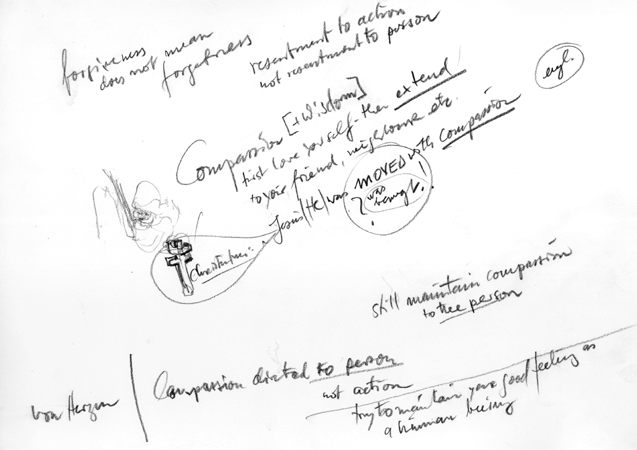 forgiveness
does not mean
forgetness
resentment to action
not resentment to person
engl.
Compassion [+ Wisdom]
first love yourself - then extend
to your friend, neighbour etc.
Jesus (He) was MOVED with compassion
? was !
Christentum:
still maintain compassion
to the person
von Herzen
Compassion directed to person
not action
try to maintain your good feeling as
a human being